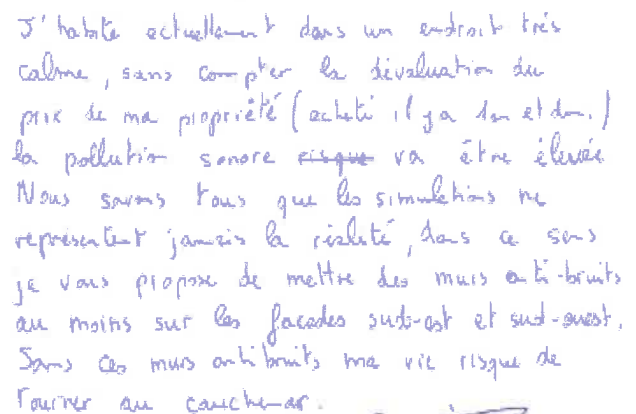 J'habite actuellement dans un endroit très
calme, sans compter la dévaluation du
prix de ma propriété (acheté il y a 1an et dmi.)
la pollution sonore risque va être élevée
Nous savons tous que les simulations ne
représentent jamais la réalité, dans ce sens
je vous propose de mettre des murs anti-bruits
au moins sur les façades sud-est et sud-ouest.
Sans ces murs antibruits ma vie risque de
tourner au cauchemar.